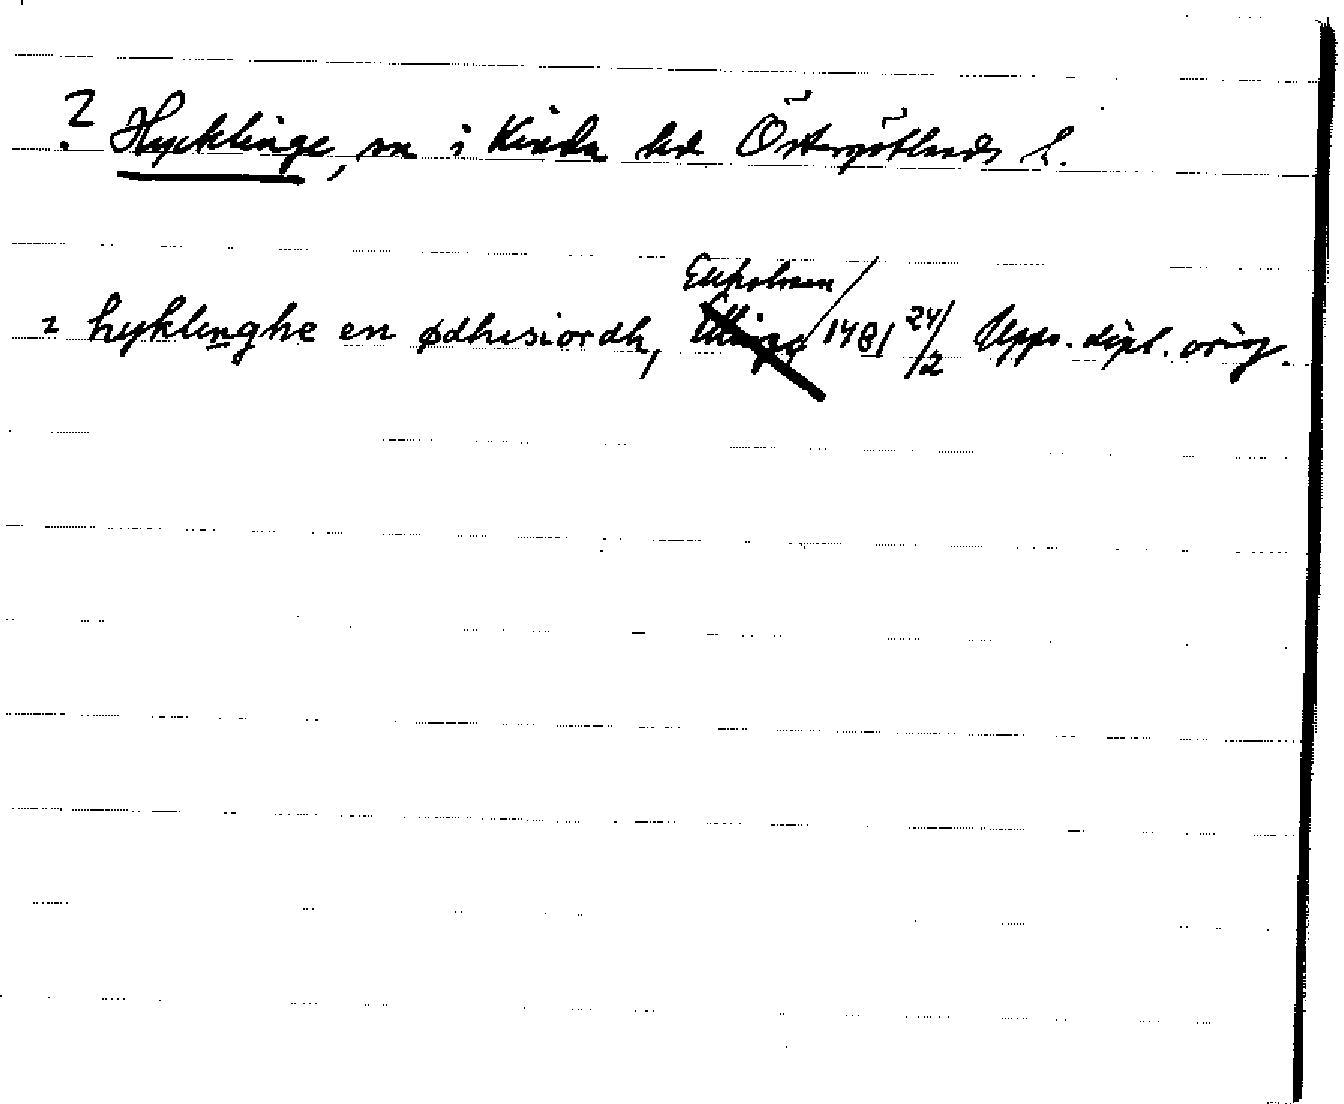 ? Hycklinge, sn i Kinda hd Östergötlands l.
i hyklinghe en ødhisiordh, 1481 24/2 Upps. dipl. orig.